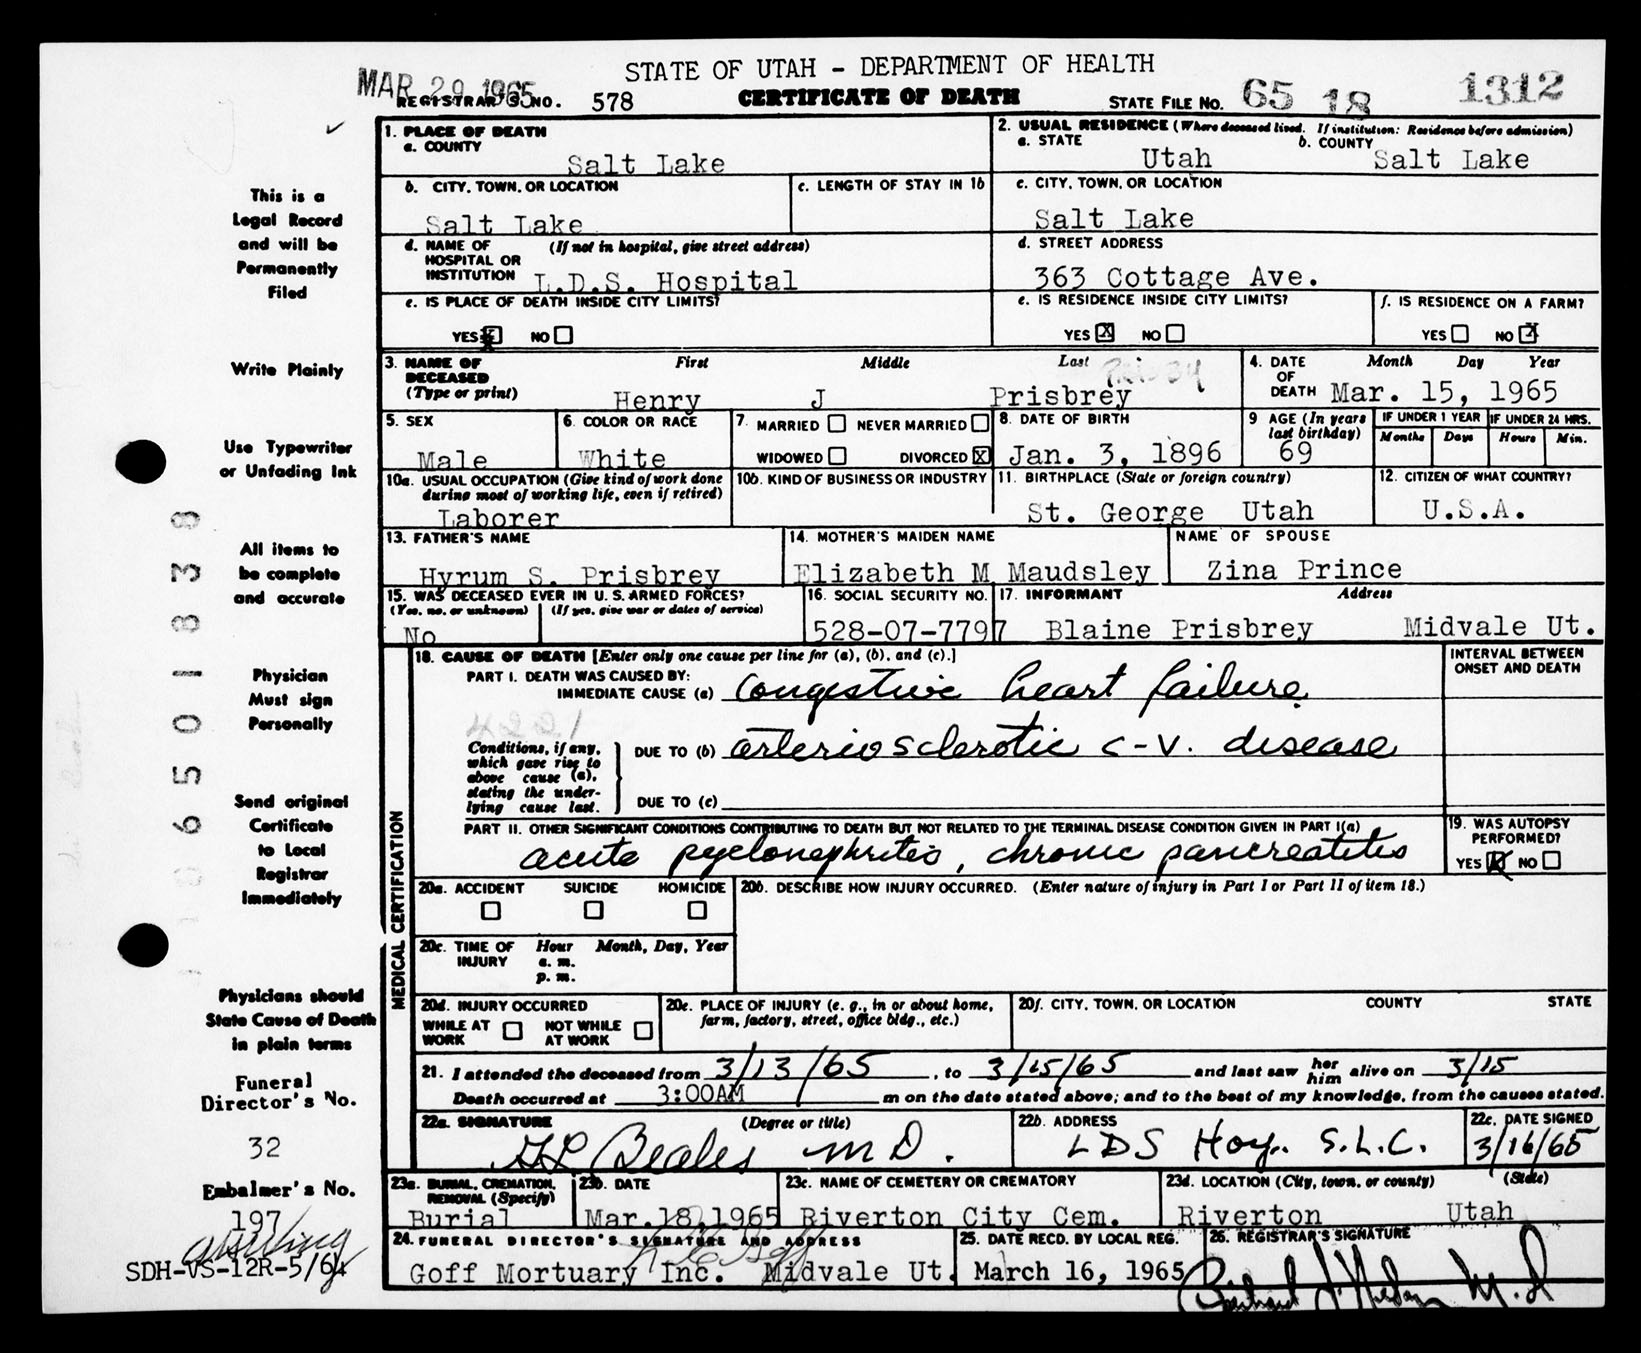 STATE OF UTAH - DEPARTMENT OF HEALTH
MAR 29 1965
REGISTRAR'S NO. 578 CERTIFICATE OF DEATH STATE FILE NO. 65 18 1312
1. PLACE OF DEATH
a. COUNTY
Salt Lake
2. USUAL RESIDENCE (Where deceased lived. If institution: Residence before admission)
a. STATE b. COUNTY
Utah Salt Lake
b. CITY, TOWN, OR LOCATION c. LENGTH OF STAY IN 1b
Salt Lake
c. CITY, TOWN, OR LOCATION
Salt Lake
d. NAME OF HOSPITAL OR INSTITUTION (If not in hospital, give street address)
L.D.S. Hospital
d. STREET ADDRESS
363 Cottage Ave.
e. IS PLACE OF DEATH INSIDE CITY LIMITS?
YES X NO
e. IS RESIDENCE INSIDE CITY LIMITS?
YES X NO
f. IS RESIDENCE ON A FARM?
YES NO X
3. NAME OF DECEASED (Type or print) First Middle Last
Henry J Prisbrey
4. DATE OF DEATH Month Day Year
Mar. 15, 1965
5. SEX
Male
6. COLOR OR RACE
White
7. MARRIED NEVER MARRIED
WIDOWED DIVORCED X
8. DATE OF BIRTH
Jan. 3, 1896
9 AGE (In years last birthday)
69
IF UNDER 1 YEAR IF UNDER 24 HRS.
Months Days Hours Min.
10a. USUAL OCCUPATION (Give kind of work done during most of working life, even if retired)
Laborer
10b. KIND OF BUSINESS OR INDUSTRY
11. BIRTHPLACE (State or foreign country)
St. George Utah
12. CITIZEN OF WHAT COUNTRY?
U.S.A.
13. FATHER'S NAME
Hyrum S. Prisbrey
14. MOTHER'S MAIDEN NAME
Elizabeth M Maudsley
NAME OF SPOUSE
Zina Prince
15. WAS DECEASED EVER IN U.S. ARMED FORCES?
(Yes, no, or unknown) (If yes, give war or dates of service)
No
16. SOCIAL SECURITY NO.
528-07-7797
17. INFORMANT Address
Blaine Prisbrey Midvale Ut.
MEDICAL CERTIFICATION
18. CAUSE OF DEATH [Enter only one cause per line for (a), (b), and (c).]
INTERVAL BETWEEN ONSET AND DEATH
PART I. DEATH WAS CAUSED BY:
IMMEDIATE CAUSE (a) Congestive heart failure
4221
Conditions, if any, which gave rise to above cause (a), stating the underlying cause last.
DUE TO (b) arteriosclerotic c-v. disease
DUE TO (c)
PART II. OTHER SIGNIFICANT CONDITIONS CONTRIBUTING TO DEATH BUT NOT RELATED TO THE TERMINAL DISEASE CONDITION GIVEN IN PART I(a)
acute pyelonephritis, chronic pancreatitis
19. WAS AUTOPSY PERFORMED?
YES X NO
20a. ACCIDENT SUICIDE HOMICIDE
20b. DESCRIBE HOW INJURY OCCURRED. (Enter nature of injury in Part I or Part II of item 18.)
20c. TIME OF INJURY Hour Month, Day, Year
a. m.
p. m.
20d. INJURY OCCURRED
WHILE AT WORK NOT WHILE AT WORK
20e. PLACE OF INJURY (e. g., in or about home, farm, factory, street, office bldg., etc.)
20f. CITY, TOWN, OR LOCATION COUNTY STATE
21. I attended the deceased from 3/13/65, to 3/15/65 and last saw her him alive on 3/15
Death occurred at 3:00AM m on the date stated above; and to the best of my knowledge, from the causes stated.
22a. SIGNATURE (Degree or title)
Beales M D.
22b. ADDRESS
LDS Hosp. S.L.C.
22c. DATE SIGNED
3/16/65
23a. BURIAL, CREMATION, REMOVAL (Specify)
Burial
23b. DATE
Mar. 18, 1965
23c. NAME OF CEMETERY OR CREMATORY
Riverton City Cem.
23d. LOCATION (City, town, or county) (State)
Riverton Utah
24. FUNERAL DIRECTOR'S SIGNATURE AND ADDRESS
Goff Mortuary Inc. Midvale Ut.
25. DATE RECD. BY LOCAL REG.
March 16, 1965
26. REGISTRAR'S SIGNATURE
This is a
Legal Record
and will be
Permanently
Filed
Write Plainly
Use Typewriter
or Unfading Ink
All items to
be complete
and accurate
Physician
Must sign
Personally
Send original
Certificate
to Local
Registrar
Immediately
Physicians should
State Cause of Death
in plain terms
Funeral
Director's No.
32
Embalmer's No.
197
SDH-VS-12R-5/64